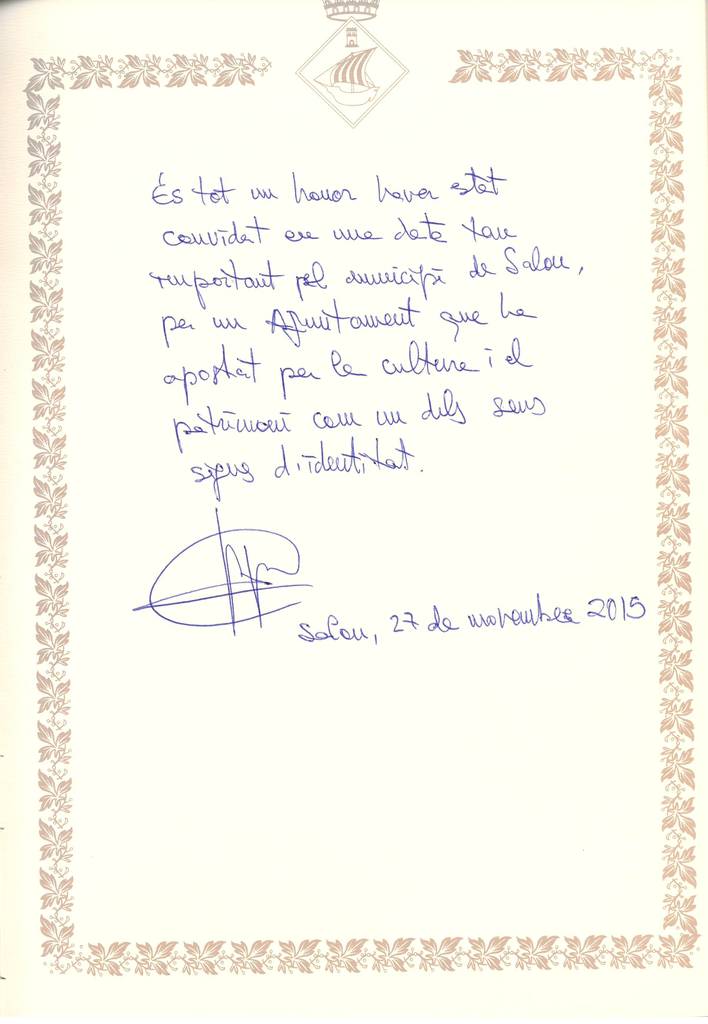 És tot un honor haver estat
convidat en una data tan
important pel municipi de Salou,
per un Ajuntament que ha
apostat per la cultura i el
patrimoni com un dels seus
signes d'identitat.
Salou, 27 de novembre 2015